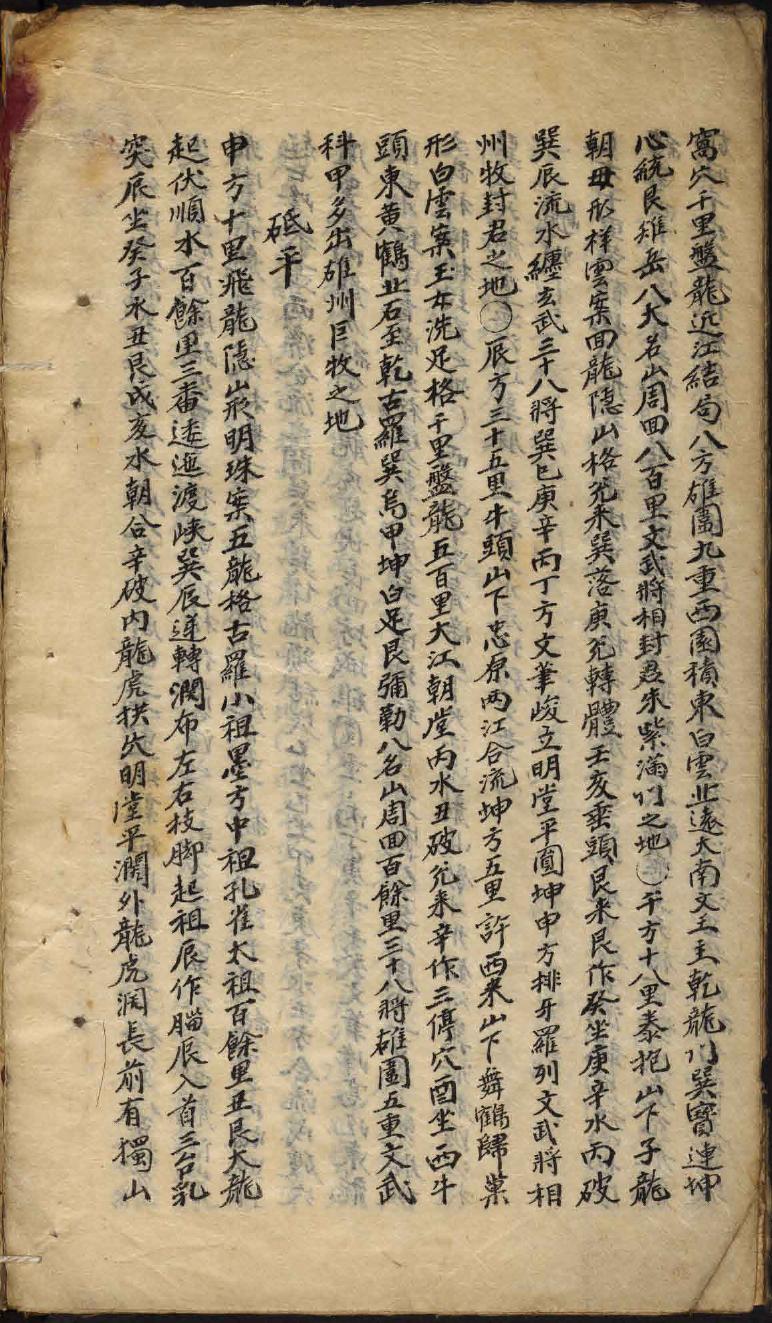 窩穴千里盤龍近江結局八方雄圍九重西園積東白雲北遠大南文玉主乾龍门巽寶連坤
心統艮雉岳八大名山周回八百里文武將相封君朱紫滿门之地〇午方十八里泰抱山下子龍
朝母形祥雲案回龍隐山格兊来巽落庚兊轉體壬亥垂頭艮来艮作癸坐庚辛水丙破
巽辰流水纏玄武三十八將巽巳庚辛丙丁方文筆峻立明堂平圓坤申方排牙羅列文武將相
州牧封君之地〇辰方三十五里牛頭山下忠原两江合流坤方五里許西来山下舞鶴歸巢
形白雲案玉女洗足格千里盤龍五百里大江朝堂丙水丑破兊来辛作三停穴酉坐西牛
頭東黄鶴北石至乾古羅巽烏甲坤白足艮彌勒八名山周回百餘里三十八將雄圍五重文武
科甲多出雄州巨牧之地
砥平
申方十里飛龍隐山形明珠案五龍格古羅小祖墨方中祖孔雀太祖百餘里丑艮大龍
起伏順水百餘里三番逶迤渡峡巽辰逆轉濶布左右枝脚起祖辰作腦辰入首三台乳
突辰坐癸子水丑艮戌亥水朝合辛破内龍虎拱穴明堂平濶外龍虎濶長前有獨山